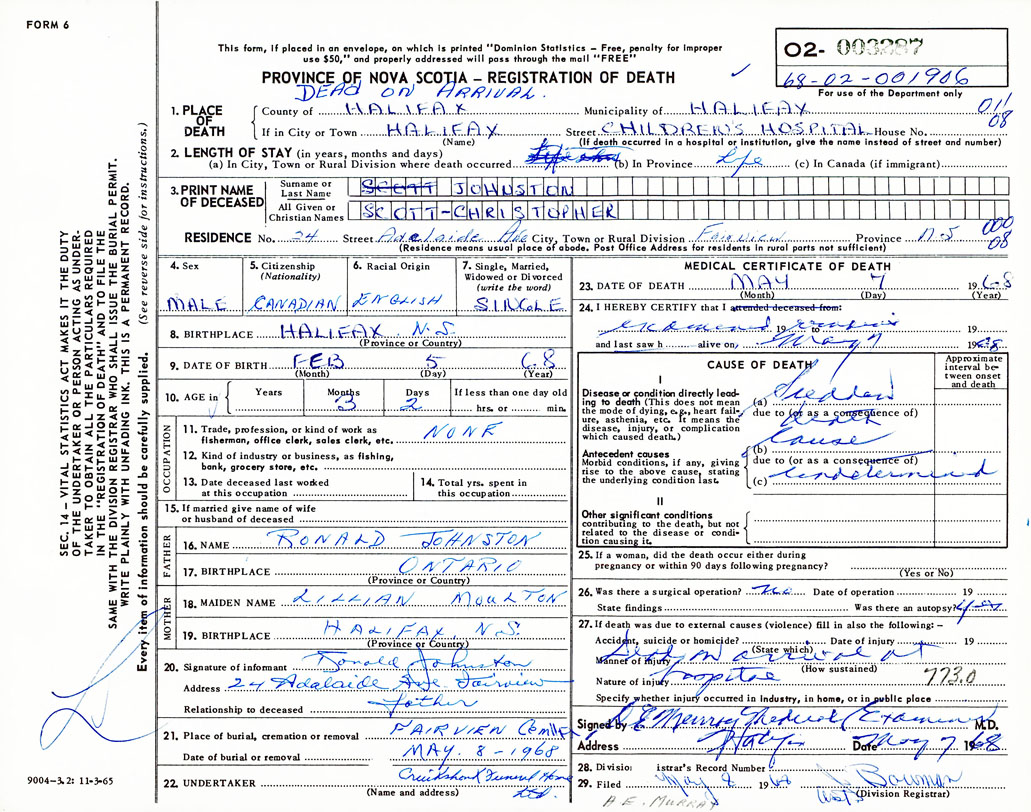 FORM 6
This form, if placed in an envelope, on which is printed "Dominion Statistics – Free, penalty for improper
use $50," and properly addressed will pass through the mail "FREE"
O2- 003287
68-02-001906
For use of the Department only
PROVINCE OF NOVA SCOTIA – REGISTRATION OF DEATH
DEAD ON ARRIVAL.
1. PLACE OF DEATH
County of HALIFAX Municipality of HALIFAX 011
08
If in City or Town HALIFAX Street CHILDREN'S HOSPITAL House No.
(Name) (If death occurred in a hospital or institution, give the name instead of street and number)
2. LENGTH OF STAY (in years, months and days)
(a) In City, Town or Rural Division where death occurred (b) In Province Life (c) In Canada (if immigrant)
3. PRINT NAME OF DECEASED
Surname or Last Name SCOTT JOHNSTON
All Given or Christian Names SCOTT-CHRISTOPHER
RESIDENCE No. 24 Street Adelaide Ave City, Town or Rural Division Fairview Province N.S 000
08
(Residence means usual place of abode. Post Office Address for residents in rural parts not sufficient)
4. Sex
MALE
5. Citizenship
(Nationality)
CANADIAN
6. Racial Origin
ENGLISH
7. Single, Married,
Widowed or Divorced
(write the word)
SINGLE
8. BIRTHPLACE HALIFAX N.S.
(Province or Country)
9. DATE OF BIRTH FEB 5 68
(Month) (Day) (Year)
10. AGE in Years Months Days If less than one day old
3 2 hrs. or min.
OCCUPATION
11. Trade, profession, or kind of work as
fisherman, office clerk, sales clerk, etc. NONE
12. Kind of industry or business, as fishing,
bank, grocery store, etc.
13. Date deceased last worked
at this occupation
14. Total yrs. spent in
this occupation
15. If married give name of wife
or husband of deceased
FATHER
16. NAME RONALD JOHNSTON
17. BIRTHPLACE ONTARIO
(Province or Country)
MOTHER
18. MAIDEN NAME LILLIAN MOULTON
19. BIRTHPLACE HALIFAX, N.S.
(Province or Country)
20. Signature of informant Ronald Johnston
Address 24 Adelaide Ave Fairview
Relationship to deceased father
21. Place of burial, cremation or removal FAIRVIEW
Date of burial or removal MAY. 8-1968
22. UNDERTAKER Cruikshank Funeral Home
Ltd.
(Name and address)
MEDICAL CERTIFICATE OF DEATH
23. DATE OF DEATH MAY 7 1968
(Month) (Day) (Year)
24. I HEREBY CERTIFY that I attended deceased from:
examined 19 to remains 19
and last saw h alive on, May 7 1968
CAUSE OF DEATH
Approximate
interval be-
tween onset
and death
I
Disease or condition directly lead-
ing to death (This does not mean
the mode of dying, e.g., heart fail-
ure, asthenia, etc. It means the
disease, injury, or complication
which caused death.)
(a) Sudden
death
due to (or as a consequence of)
Antecedent causes
Morbid conditions, if any, giving
rise to the above cause, stating
the underlying condition last.
(b) Cause
due to (or as a consequence of)
(c) Undetermined
II
Other significant conditions
contributing to the death, but not
related to the disease or condi-
tion causing it.
25. If a woman, did the death occur either during
pregnancy or within 90 days following pregnancy?
(Yes or No)
26. Was there a surgical operation? No Date of operation 19
State findings Was there an autopsy? Yes
27. If death was due to external causes (violence) fill in also the following: –
Accident, suicide or homicide? Date of injury 19
(State which)
Manner of injury Dead on arrival at
(How sustained)
Nature of injury hospital 773.0
Specify whether injury occurred in Industry, in home, or in public place
Signed by E Murray Medical Examiner M.D.
Address Halifax Date May 7 1968
28. Divisio istrar's Record Number
29. Filed May 8 1968 Bowman
(Division Registrar)
A E. MURRAY
SEC. 14 – VITAL STATISTICS ACT MAKES IT THE DUTY
OF THE UNDERTAKER OR PERSON ACTING AS UNDER-
TAKER TO OBTAIN ALL THE PARTICULARS REQUIRED
IN THE "REGISTRATION OF DEATH" AND TO FILE THE
SAME WITH THE DIVISION REGISTRAR WHO SHALL ISSUE THE BURIAL PERMIT.
WRITE PLAINLY WITH UNFADING INK. THIS IS A PERMANENT RECORD.
Every item of information should be carefully supplied. (See reverse side for instructions.)
9004-3.2: 11-3-65